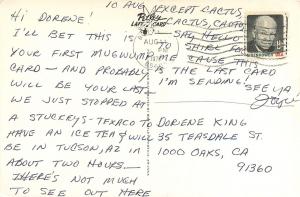 10 AUG
EXCEPT CACTUS,
CACTUS, CACTUS
SAY HELLO
TO SHIRL FOR
ME CAUSE THIS
IS THE LAST CARD
I'M SENDING.
SEE YA
Joyce!
HI DORENE!
I'LL BET THIS IS
YOUR FIRST MUGWUMP
CARD — AND PROBABLY
WILL BE YOUR LAST.
WE JUST STOPPED AT
A STUCKEY'S-TEXACO TO
HAVE AN ICE TEA & WILL
BE IN TUCSON, AZ IN
ABOUT TWO HOURS—
THERE'S NOT MUCH
TO SEE OUT HERE
DORIENE KING
35 TEASDALE ST.
1000 OAKS, CA
91360
Petley
AUG
EISENHOWER